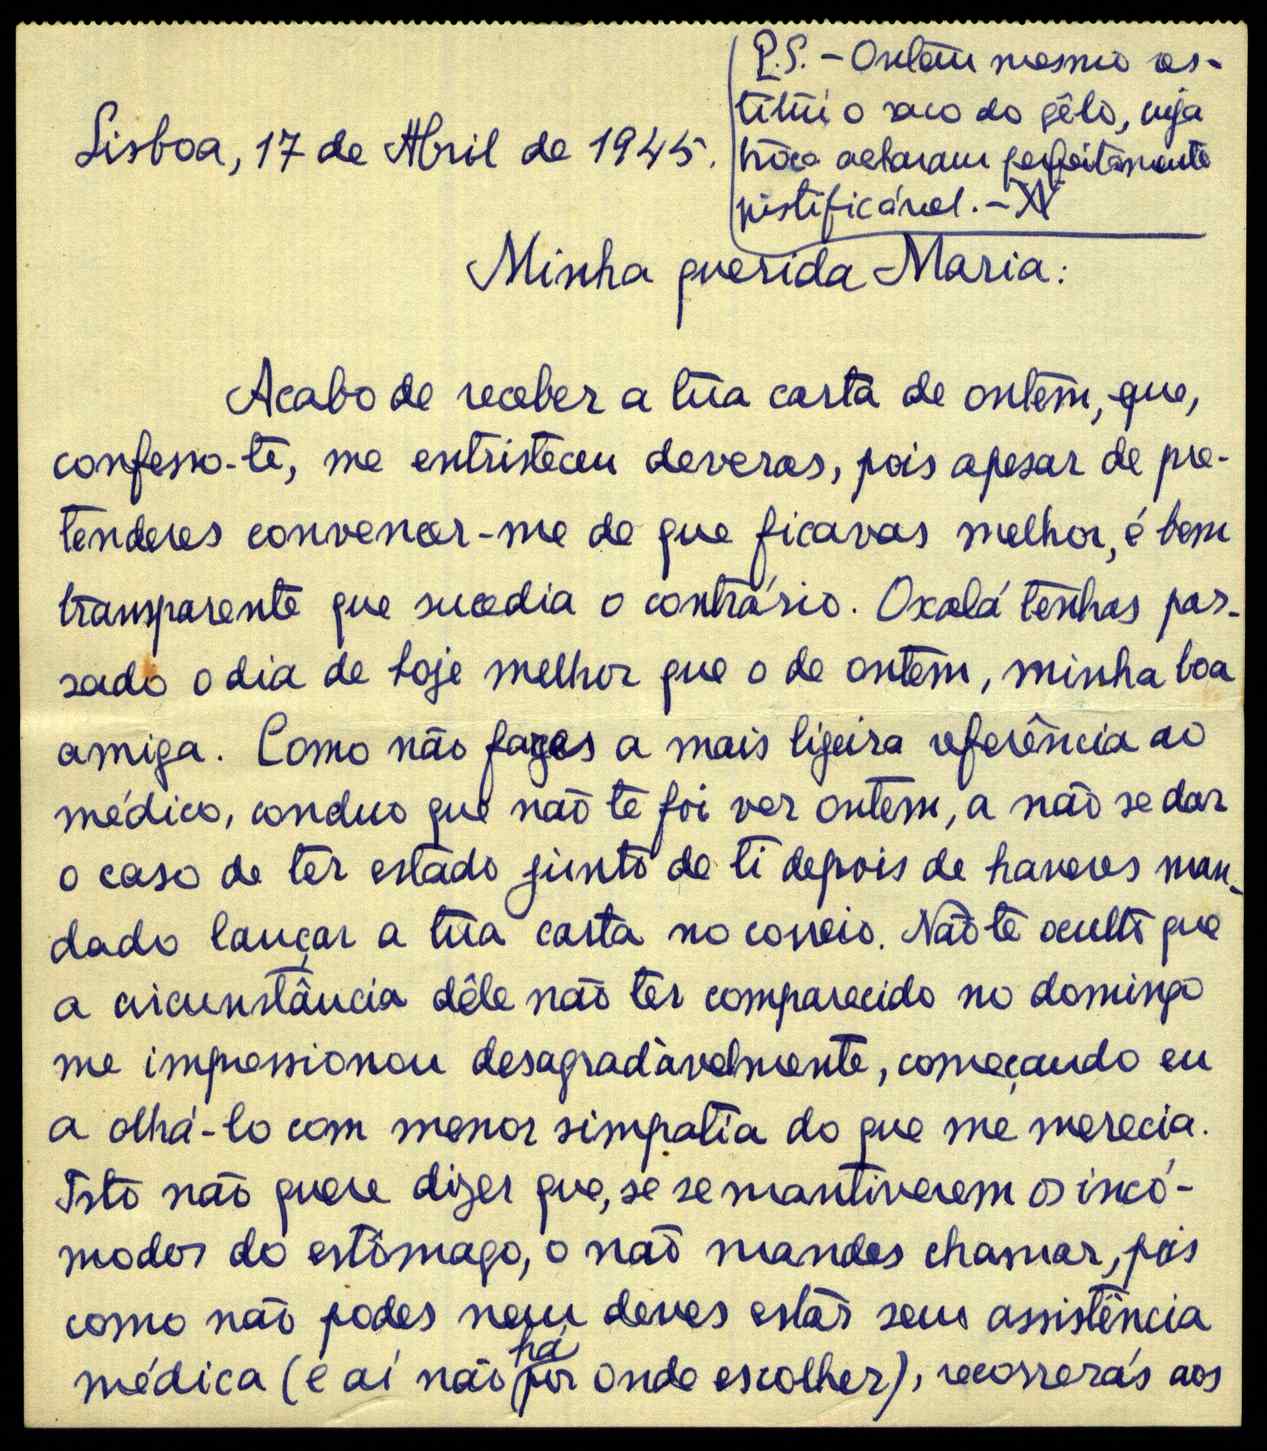 P.S. - Ontem mesmo res-
titüi o saco do gêlo, cuja
troca acharam perfeitamente
justificável. - N
Lisboa, 17 de Abril de 1945.
Minha querida Maria:
Acabo de receber a tua carta de ontem, que,
confesso-te, me entristeceu deveras, pois apesar de pre-
tenderes convencer-me de que ficavas melhor, é bem
transparente que sucedia o contrário. Oxalá tenhas pas-
sado o dia de hoje melhor que o de ontem, minha boa
amiga. Como não fazes a mais ligeira referência ao
médico, concluo que não te foi ver ontem, a não se dar
o caso de ter estado junto de ti depois de haveres man-
dado lançar a tua carta no correio. Não te oculto que
a circunstância dêle não ter comparecido no domingo
me impressionou desagradàvelmente, começando eu
a olhá-lo com menor simpatia do que me merecia.
Isto não quere dizer que, se se mantiverem os incó-
modos do estômago, o não mandes chamar, pois
como não podes nem deves estar sem assistência
médica (e aí não há por onde escolher), recorrerás aos